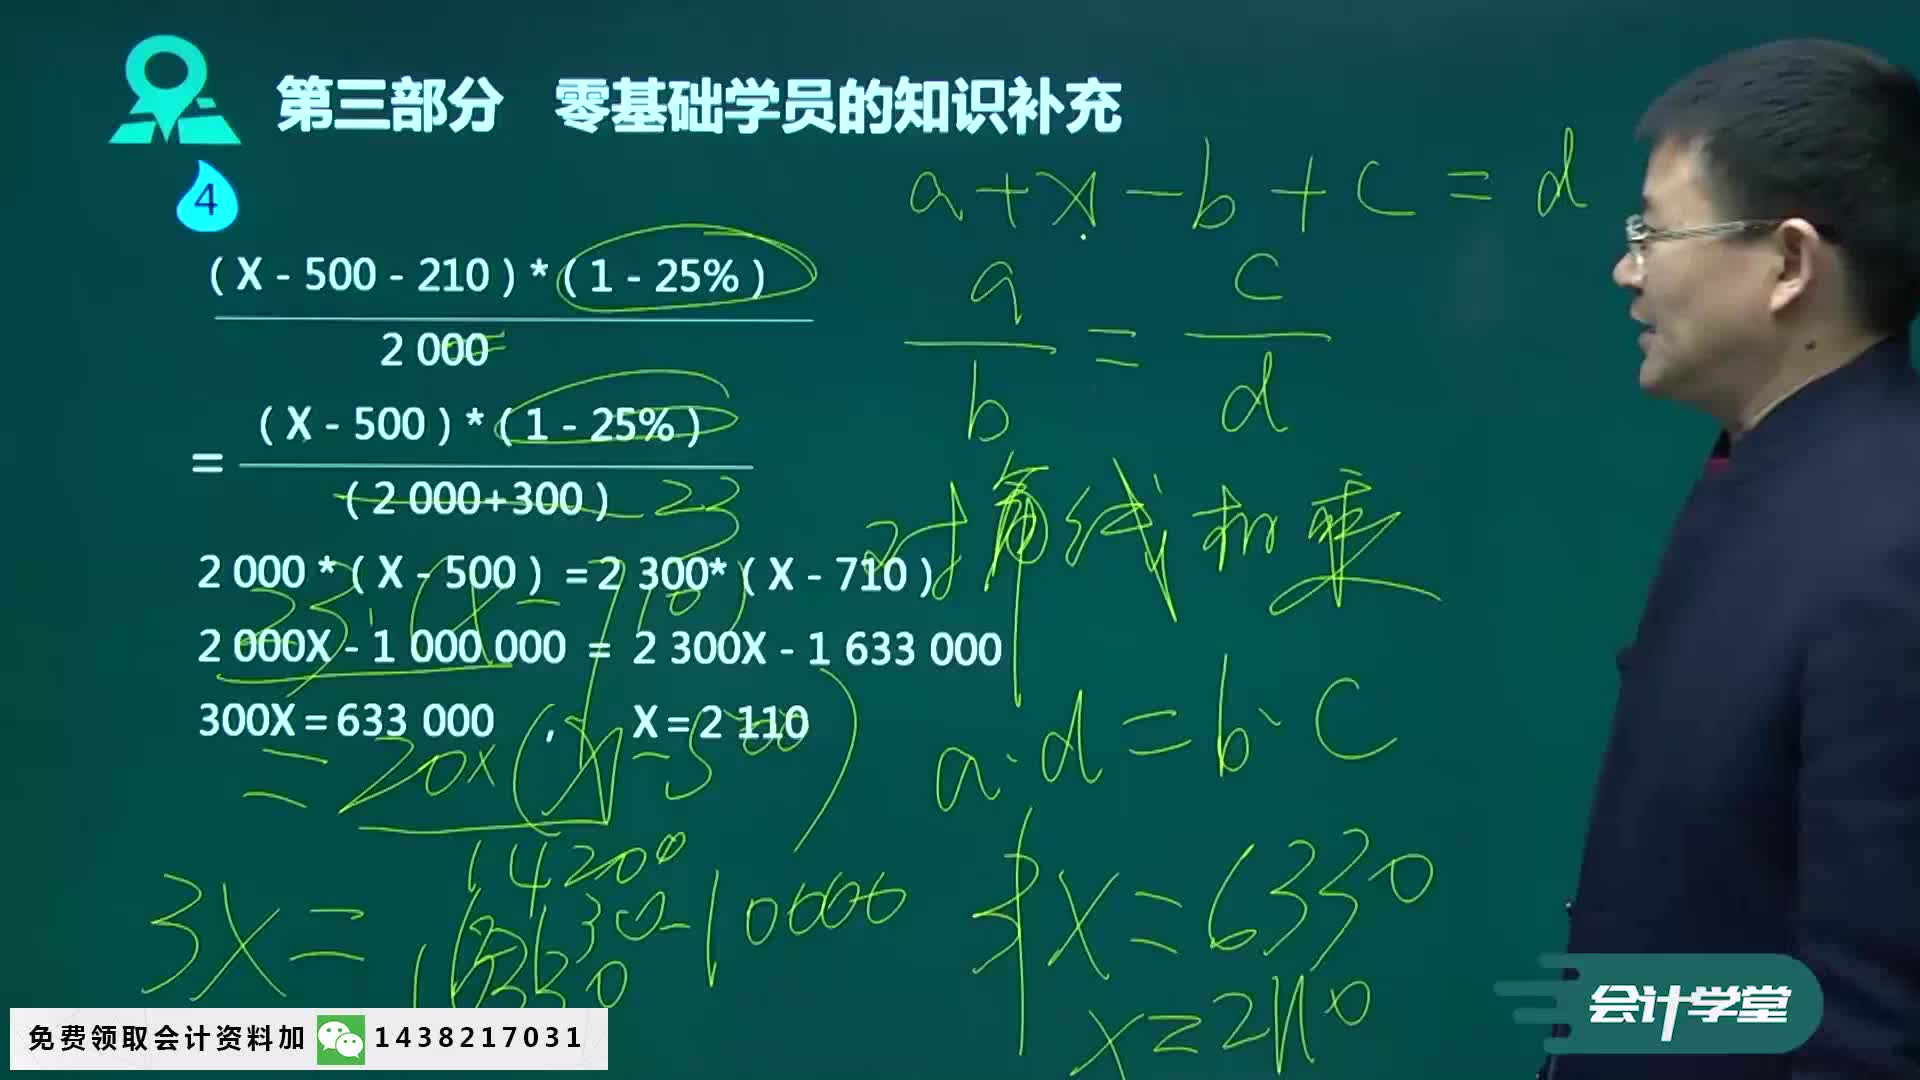 第三部分 零基础学员的知识补充
4
a+x-b+c=d
(X-500-210)*(1-25%)
2 000
=
a
b
=
c
d
=
(X-500)*(1-25%)
(2 000+300)
23
对角线相乘
2 000*(X-500)=2 300*(X-710)
23·(X-710)
2 000X-1 000 000 = 2 300X-1 633 000
300X=633 000 , X=2 110
=20x(X-500)
a·d=b·c
14200
3X=
16330
-10000
3X=6330
x=2110
会计学堂
免费领取会计资料加 1438217031